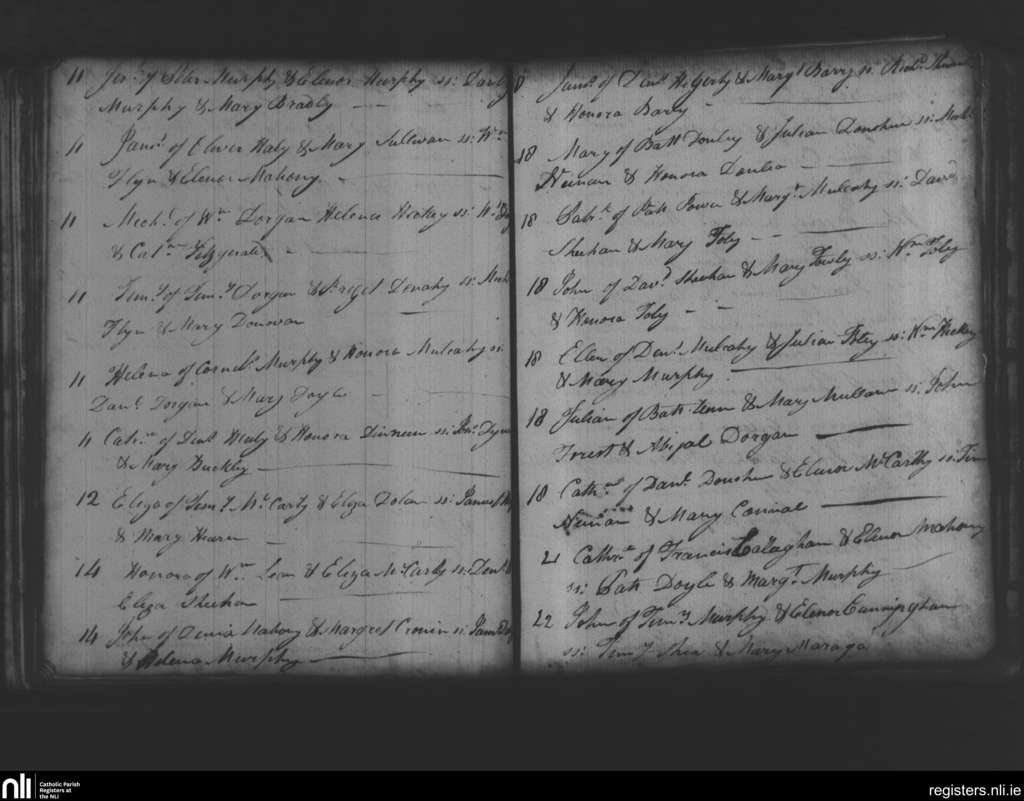 11 Jer.y of Peter Murphy & Elenor Murphy ss: Darby
Murphy & Mary Bradly
11 James of Oliver Haly & Mary Sullivan ss: Wm
Flyn & Elenor Mahony
11 Mich.l of Wm Dorgan Helena Hickey ss: Wm
& Cat.ne Fitzgerald
11 Tim.y of Tim.y Dorgan & Denahy ss: Mich
Flyn & Mary Donovan
11 Helena of Cornel.s Murphy & Honora Mulcahy ss:
Dan.l Dorgan & Mary Doyle
11 Cat.ne of Den.s Healy & Honora Dinneen ss:
& Mary Buckley
12 Eliza of Tim.y McCarty & Eliza Dolan ss: James
& Mary Hearn
14 Honora of Wm & Eliza McCarty ss: Den.s
Eliza Sheehan
14 John of Denis Mahony & Margret Cronin ss: James
& Helena Murphy
James of Den.s & Marg.t Barry ss:
& Honora Barry
18 Mary of Batt & Julian Donohue ss: Mich.l
Neenan & Honora
18 Patr.k of Patt Power & Marg.t Mulcahy ss: Dav.d
Sheehan & Mary Foley
18 John of Dav.d Sheehan & Mary ss: Wm Foley
& Honora Foley
18 Ellen of Den.s Mulcahy & Julian ss: Wm Hickey
& Mary Murphy
18 Julian of Batt & Mary ss: John
Forrest & Abigal Dorgan
18 Cath.ne of Dan.l Donohue & Elenor McCarthy ss: Tim
Neenan & Mary Connal
21 Cathr.ne of Francis Callaghan & Elenor Mahony
ss: Patt Doyle & Marg.t Murphy
22 John of Tim.y Murphy & Elenor Cunningham
ss: Tim.y Shea & Mary Maraga
nli
Catholic Parish
Registers at
the NLI
registers.nli.ie